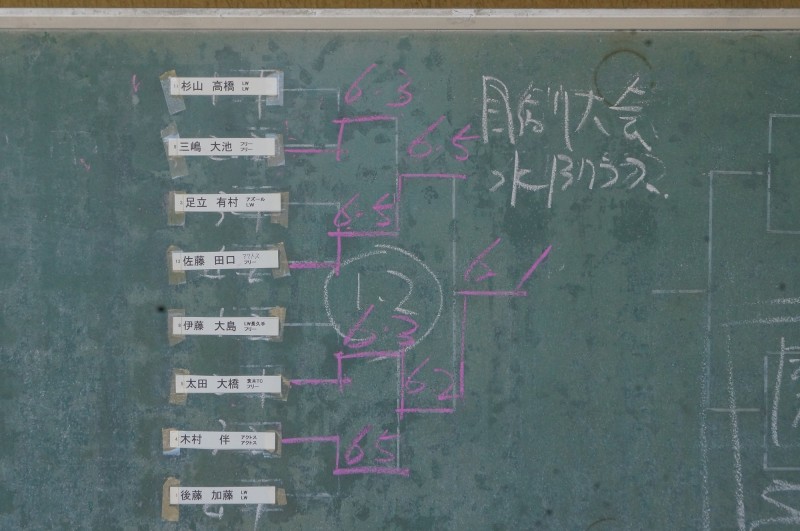 杉山 高橋 LW LW
6.3
月例大会
三嶋 大池 フリー フリー
6.5
水曜クラス
足立 有村 アズール LW
6.5
佐藤 田口 アクトス フリー
6.1
1.2
伊藤 大島 フリー
6.3
太田 大橋 フリー
62
木村 伴 アクトス アクトス
65
後藤 加藤 LW LW